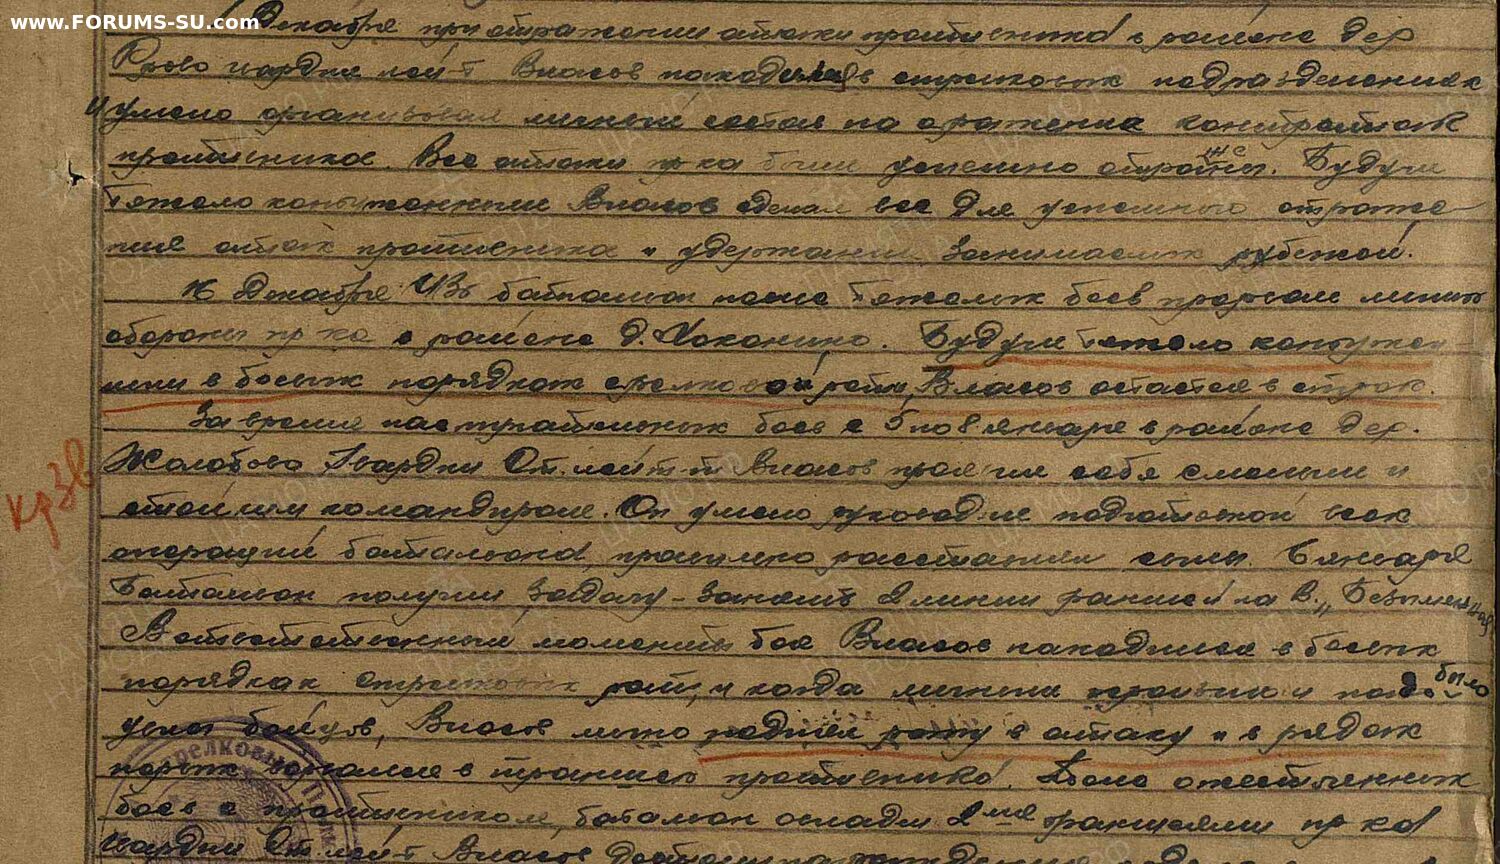 www.FORUMS-SU.com
Декабря при отражении атаки противника в районе дер
гвардии лейт Власов находился в стрелковых подразделениях
и умело организовал личный состав на отражение контратак
противника. Все атаки пр-ка были успешно отражены. Будучи
тяжело контуженным Власов сделал все для успешного отраже
ния атак противника и удержания занимаемых рубежей.
16 Декабря 43г батальон после тяжелых боев прорвал линию
обороны пр-ка в районе д. . Будучи тяжело контужен
ным в боевых порядках стрелковой роты, Власов остается в строю.
За время наступательных боев с 5 по 8 января в районе дер.
Жалобово Гвардии Ст. лейт-т Власов проявил себя смелым и
стойким командиром. Он умело руководил подготовкой всех
операций батальона, правильно расставлял силы. 6 января
Батальон получил задачу - занять 2 линии траншей на В. "Безымянная
В ответственный моменты боя Власов находился в боевых
порядках стрелковых рот, и когда линию прорвали и надо было
бойцов, Власов лично поднял роту в атаку и в рядах
первых ворвался в траншею противника. После ожесточенных
боев с противником, батальон овладел 2-мя траншеями пр-ка
Гвардии Ст лейт Власов
Кр Зв